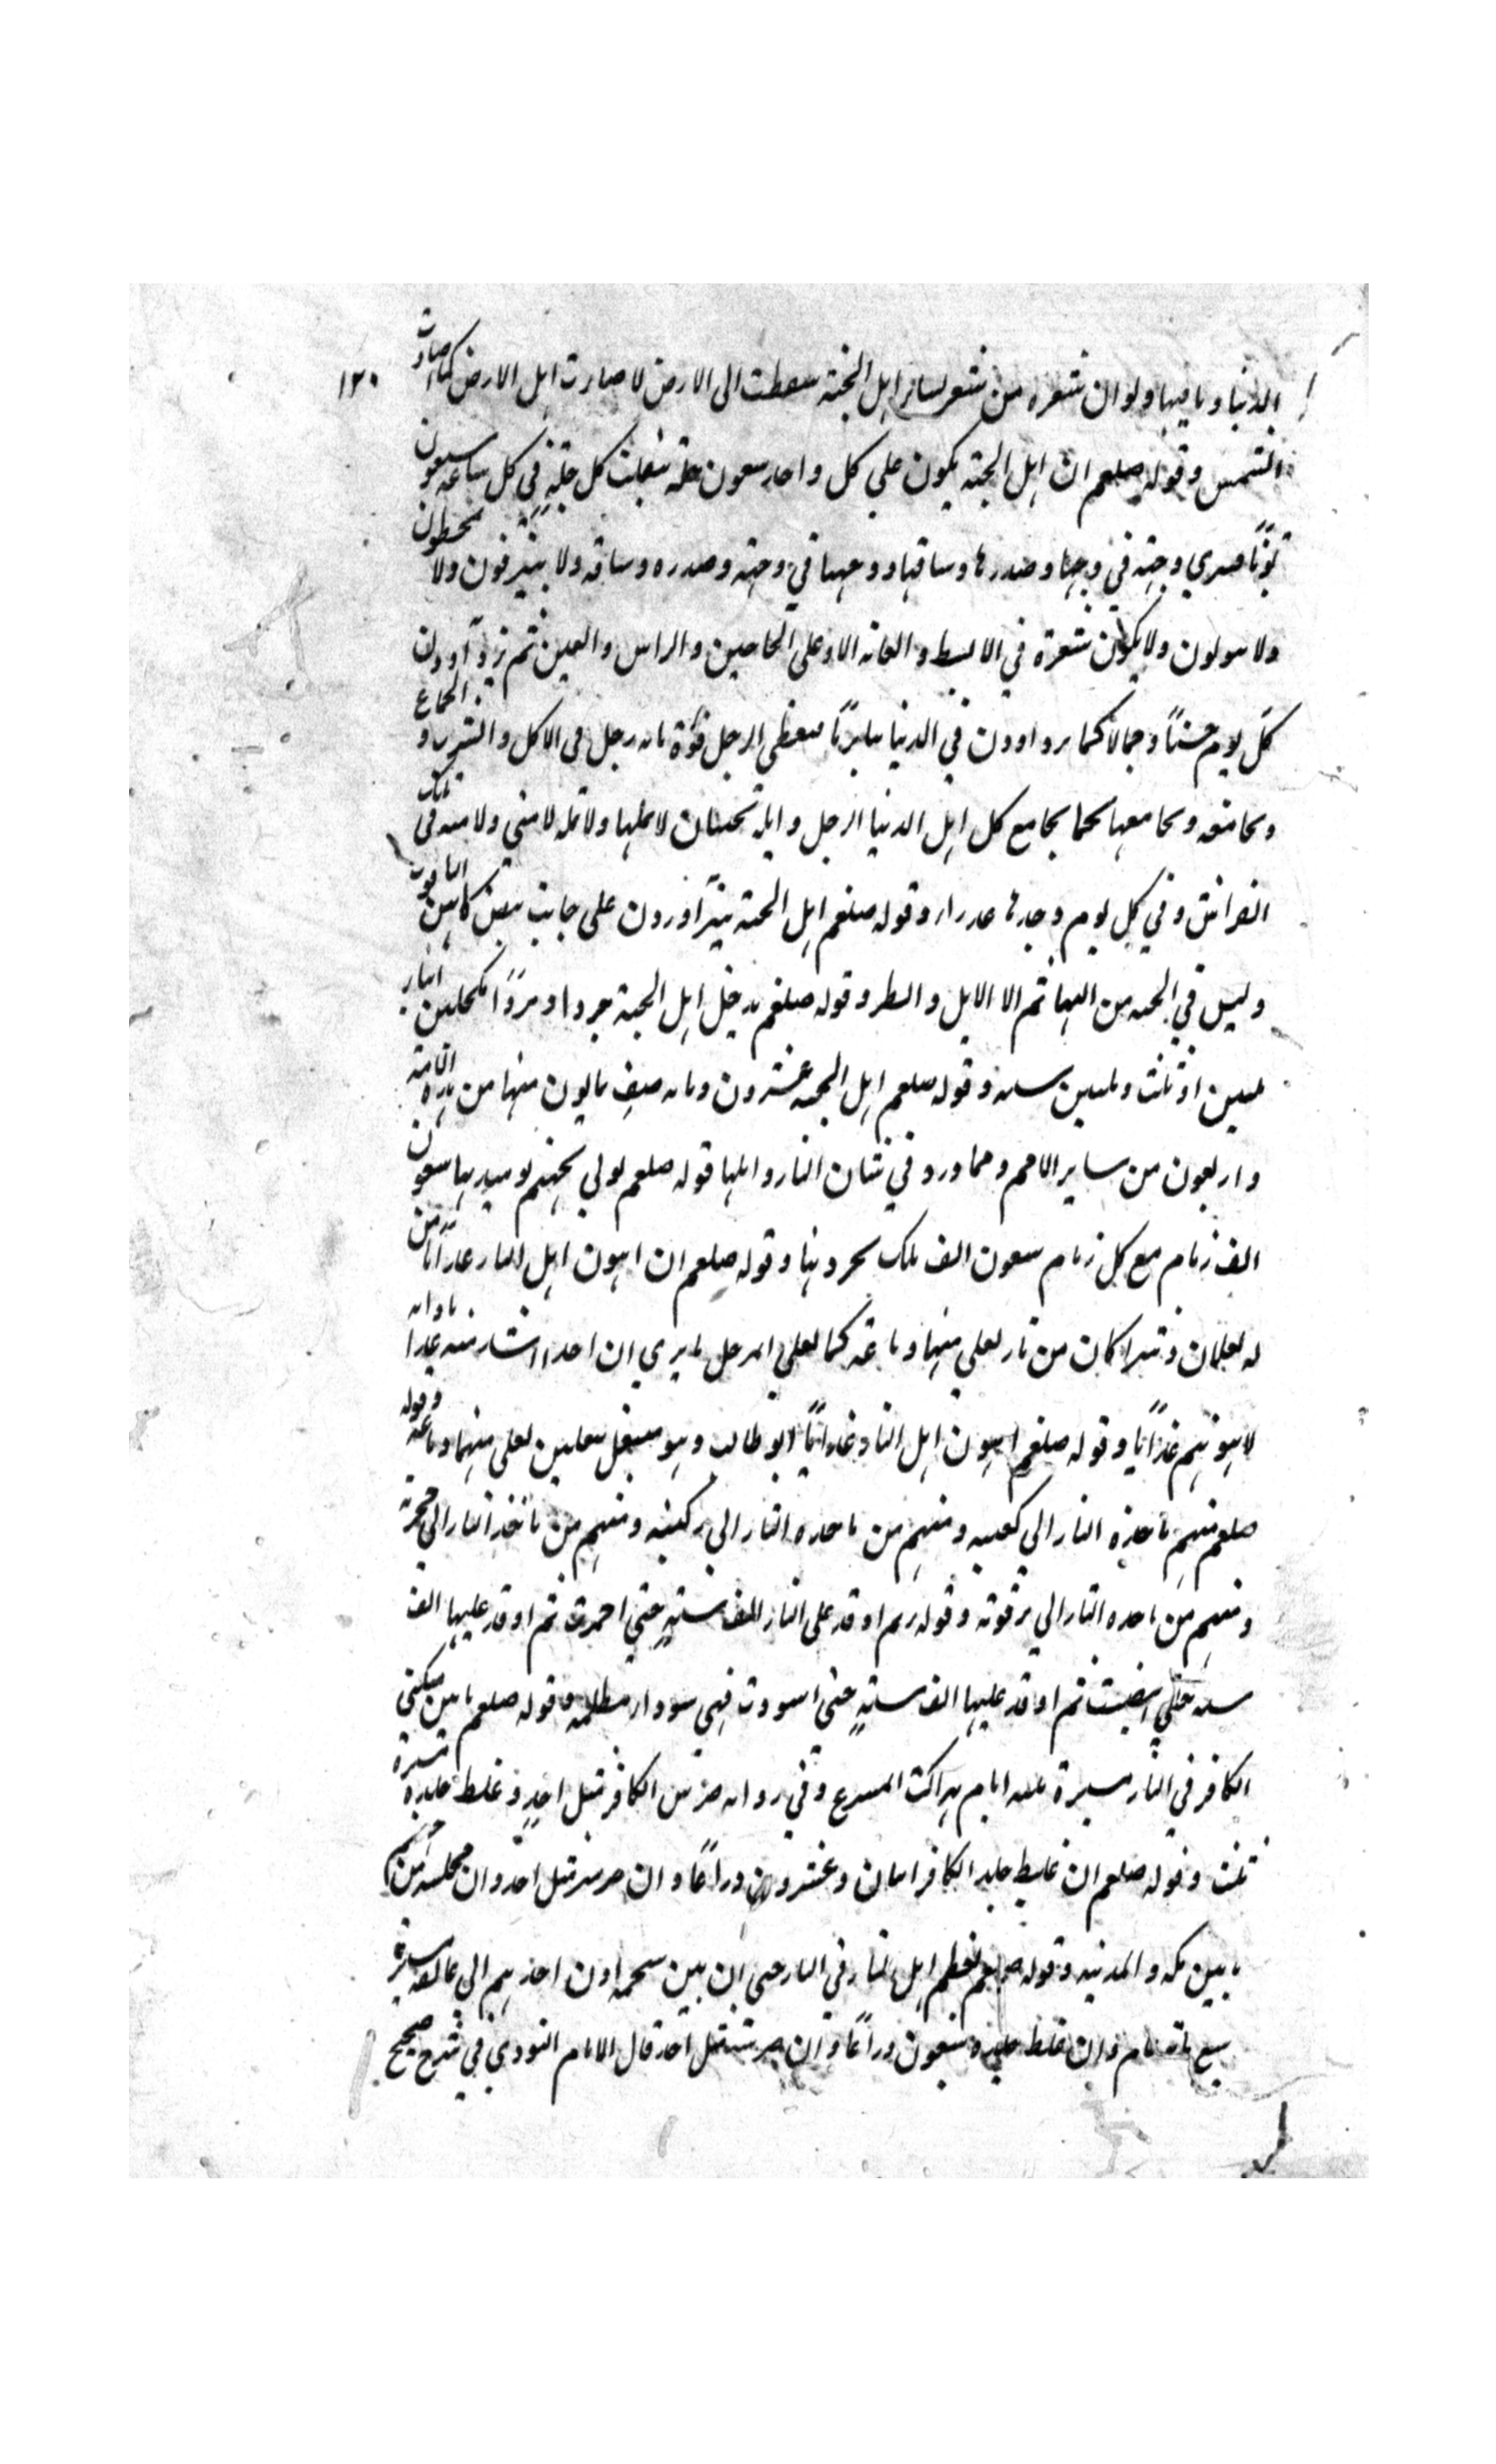 ١٢٠
الدنيا وما فيها ولو ان شعرة من شعر نساء اهل الجنة سقطت الى الارض لاضارت اهل الارض كما ضارت
الشمس وقوله صلعم ان اهل الجنة يكون على كل واحد سبعون حلة تنقلب كل حلة في كل ساعة سبعون
لونًا فيرى وجهه في وجهها وصدرها وساقها ووجهها في وجهه وصدره وساقه ولا يبزقون ولا يمخطون
ولا يبولون ولا يكون شعرة في الابط والعانة الا وعلى الحاجبين والراس والعين ثم يزدادون
كل يوم حسنًا وجمالا كما يزدادون في الدنيا هرمًا فيعطى الرجل قوة مائة رجل في الاكل والشرب و الجماع
ويجامعها كما يجامع كل اهل الدنيا الرجل واهله لا يملها ولا تمله لا مني ولا منية في تلك
الفراش وفي كل يوم وجدها عذراء وقوله صلعم اهل الجنة يتزاورون على جانب بيض كانهن الياقوت
وليس في الجنة من البهائم الا الابل والطير وقوله صلعم يدخل اهل الجنة جردا ومردًا مكحلين ابناء
ثلثين او ثلث وثلثين سنة وقوله صلعم اهل الجنة عشرون ومائة صف ثمانون منها من هذه الامة
واربعون من ساير الامم ومما ورد في شان النار واهلها قوله صلعم يؤتى بجهنم يوميذ لها سبعون
الف زمام مع كل زمام سبعون الف ملك يجرونها وقوله صلعم ان اهون اهل النار عذابًا من
له نعلان وشراكان من نار يغلي منهما دماغه كما يغلي المرجل ما يرى ان احدا اشد منه عذابا وانه
لاهونهم عذابًا وقوله صلعم اهون اهل النار عذابًا ابو طالب وهو متنعل بنعلين يغلي منهما دماغه وقوله
صلعم منهم تاخذه النار الى كعبيه ومنهم من تاخذه النار الى ركبتيه ومنهم من تاخذه النار الى حجزته
ومنهم من تاخذه النار الى ترقوته وقوله صلعم اوقد على النار الف سنة حتى احمرت ثم اوقد عليها الف
سنة حتى ابيضت ثم اوقد عليها الف سنة حتى اسودت فهي سوداء مظلمة وقوله صلعم ما بين منكبي
الكافر في النار مسيرة ثلثة ايام للراكب المسرع وفي رواية ضرس الكافر مثل احد وغلظ جلده مسيرة
ثلث وقوله صلعم ان غلظ جلد الكافر اثنان وعشرون ذراعًا وان ضرسه مثل احد وان مجلسه من جهنم
ما بين مكة والمدينة وقوله صلعم يعظم اهل النار في النار حتى ان بين شحمة اذن احدهم الى عاتقه مسيرة
سبع مائة عام وان غلظ جلده سبعون ذراعًا وان ضرسه مثل احد قال الامام النووي في شرح صحيح